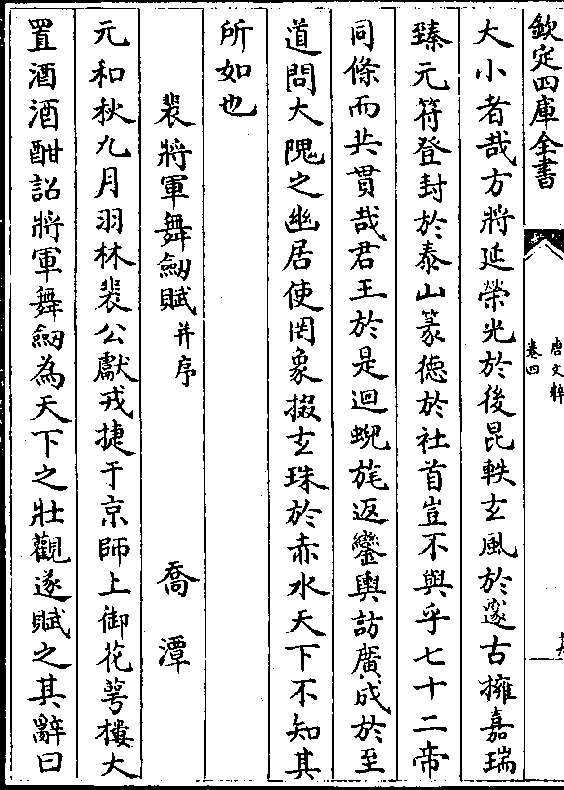 欽定四庫全書
唐文粹
卷四
大小者哉方將延榮光於後昆軼玄風於邃古擁嘉瑞
臻元符登封於泰山篆德於社首豈不與乎七十二帝
同條而共貫哉君王於是迴蜺旄返鑾輿訪廣成於至
道問大隗之幽居使罔象掇玄珠於赤水天下不知其
所如也
裴將軍舞劒賦并序
喬潭
元和秋九月羽林裴公獻戎捷于京師上御花萼樓大
置酒酒酣詔將軍舞劒為天下之壯觀遂賦之其辭曰